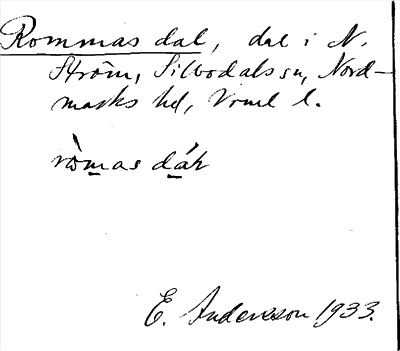 Rommas dal, dal i N.
Ström, Silbodals sn, Nord-
marks hd, Vrml l.
ròmas dáḷ
E. Andersson 1933.